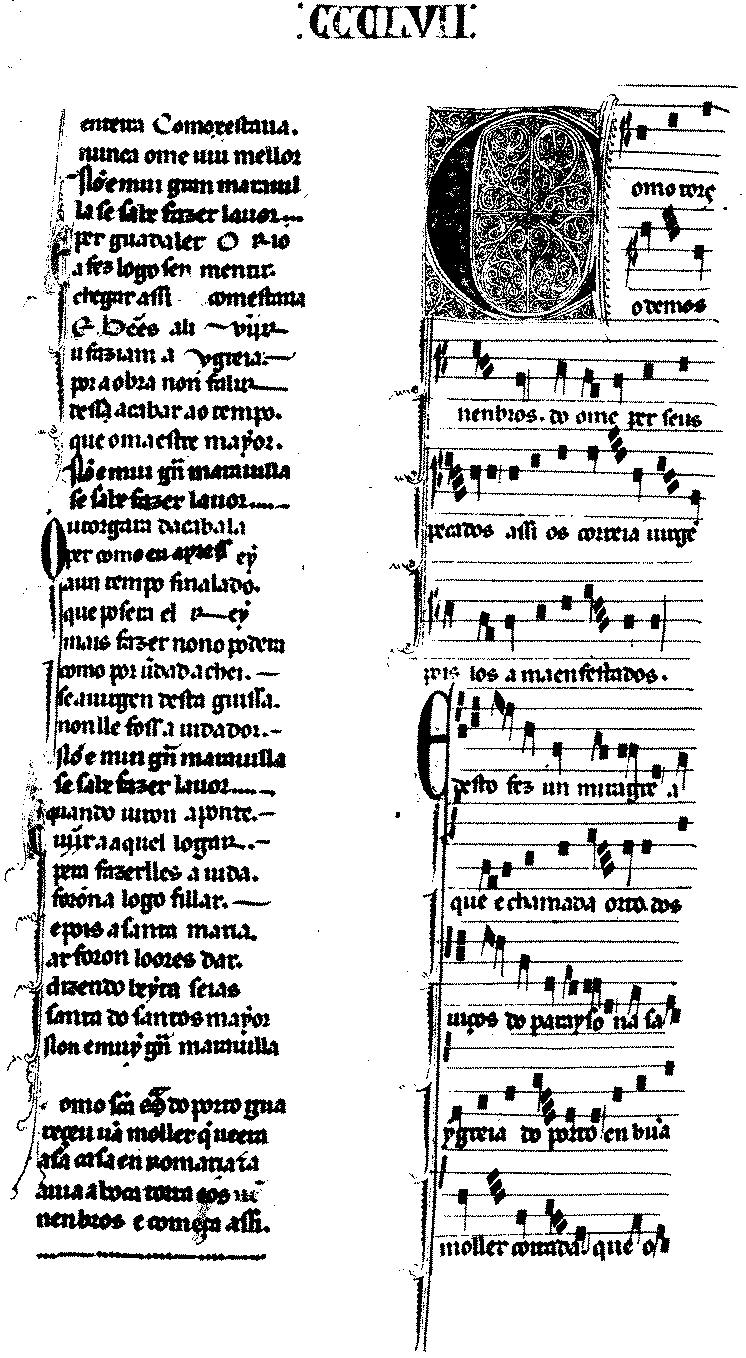 CCCLVII
enteira Com or estaua.
nunca ome uiu mellor
Nõ e mui gran marauil
la se sabe fazer lauor...
per guadalet O rio
a fez logo sen mentir.
chegar assi com estaua
u fazian a ygreia.
por a obra non falir
dess acabar ao tempo.
que o maestre mayor.
Nõ e mui grã marauilla
se sabe fazer lauor....
Outorgara d acabala
per com
aun tempo sinalado.
que posera el Rey
mais fazer nono podera
como por uerdad achei.
se a uirgen desta guisa.
non lle foss aiudador.
Nõ e mui grã marauilla
se sabe fazer lauor....
quando uiron a ponte.
uijr a aquel logar.
pera fazerlles aiuda.
foróna logo fillar.
e pois a santa maria.
ar foron loores dar.
dizendo beeyta seias
santa do santos mayor
Non e muy grã marauilla
omo scã do porto gua
reçeu ũa moller q̇ ueera
a sa casa en romaria ca
auia a boca torta
nenbros e começa assi.
Como torç
o demos
nenbros. do ome per seus
pecados assi os correia uirgẽ
pois los a maenfestados.
E desto fez un miragre a
que e chamada orto. dos
uiços do parayso na sa
ygreia do porto en hũa
moller coitada. que o